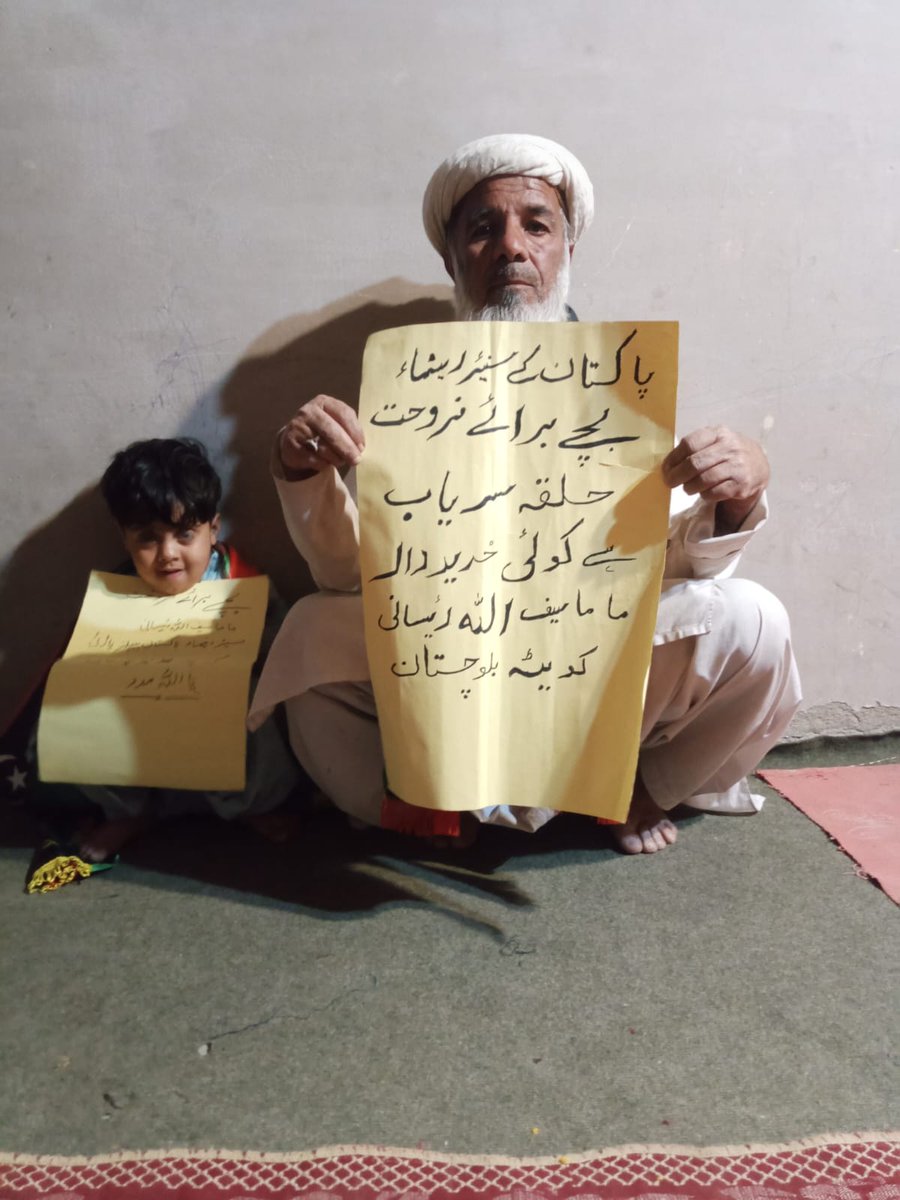 پاکستان کے سینئر رہنماء
بچے برائے فروخت
حلقہ سریاب
ہے کوئی خریددالر
ماما سیف اللہ رئیسانی
کوئیٹہ بلوچستان
بچے برائے فروخت
ماما سیف اللہ رئیسانی
سینئر رہنماء پاکستان پیپلز پارٹی
یا اللہ مدد